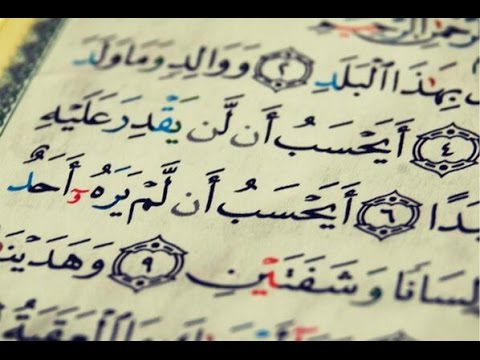 الرحيم
بِهَٰذَا ٱلْبَلَدِ ٢ وَوَالِدٍ وَمَا وَلَدَ
٤ أَيَحْسَبُ أَن لَّن يَقْدِرَ عَلَيْهِ
بَدًا ٦ أَيَحْسَبُ أَن لَّمْ يَرَهُۥ أَحَدٌ
لِسَانًا وَشَفَتَيْنِ ٩ وَهَدَيْنَ
ٱلْعَقَبَةَ